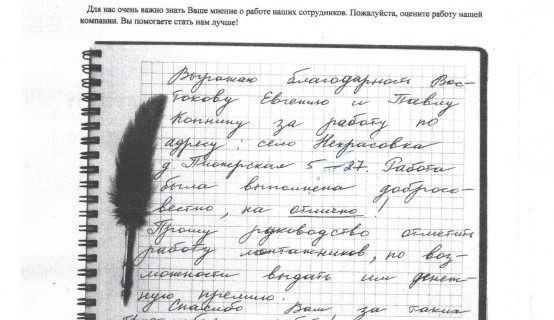 Для нас очень важно знать Ваше мнение о работе наших сотрудников. Пожалуйста, оцените работу нашей
компании. Вы помогаете стать нам лучше!
Выражаю благодарность Вос-
токову Евгению и Павлу
Копнину за работу по
адресу: село Некрасовка
д. Пионерская 5 - 27. Работа
была выполнена добросо-
вестно, на отлично!
Прошу руководство отметить
работу монтажников, по воз-
можности выдать им денеж-
ную премию.
Спасибо Вам за таких